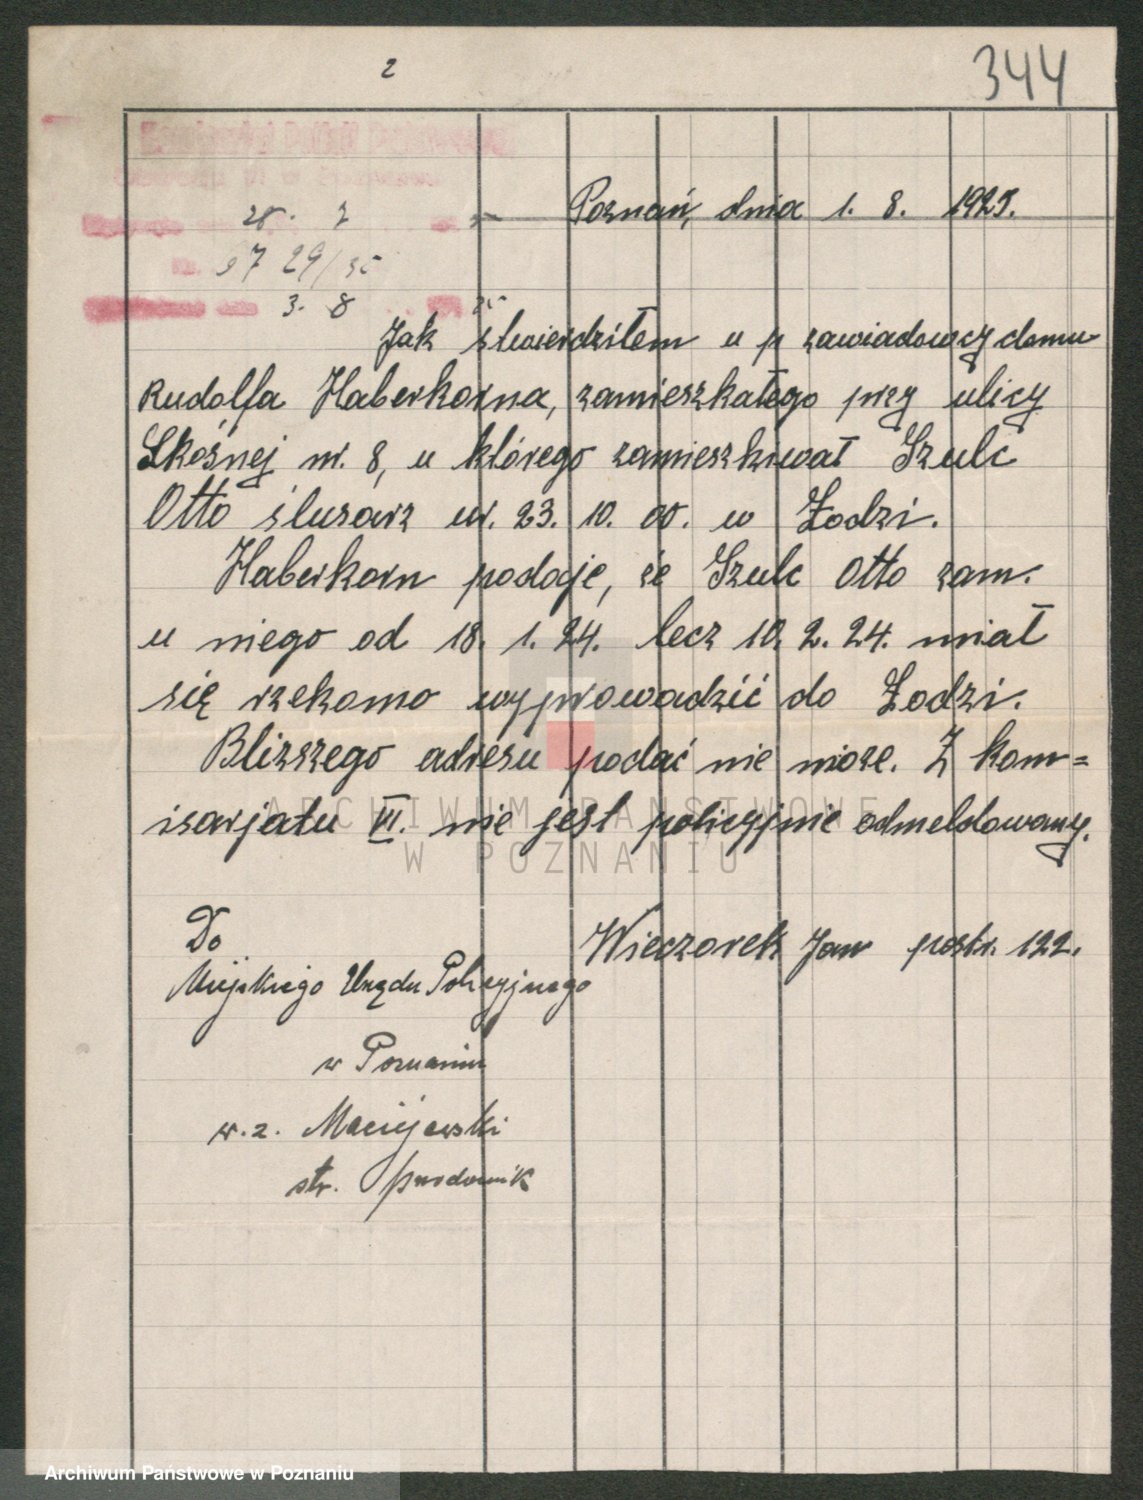 2
344
Poznań, dnia 1. 8. 1925.
28. 7
97 29/35
3. 8 25
Jak stwierdziłem u p zawiadowcy domu
Rudolfa Haberkorna, zamieszkałego przy ulicy
Skośnej nr. 8, u którego zamieszkiwał Szulc
Otto ślusarz ur. 23. 10. 00. w Łodzi.
Haberkorn podaje, że Szulc Otto zam.
u niego od 18. 1. 24. lecz 10. 2. 24. miał
się rzekomo wyprowadzić do Łodzi.
Bliższego adresu podać nie może. Z kom=
isarjatu VI. nie jest policyjnie odmeldowany.
ARCHIWUM PAŃSTWOWE
W POZNANIU
Wieczorek Jan postr. 122.
Do
Miejskiego Urzędu Policyjnego
w Poznaniu
w.z. Maciejewski
str. przodownik
Archiwum Państwowe w Poznaniu